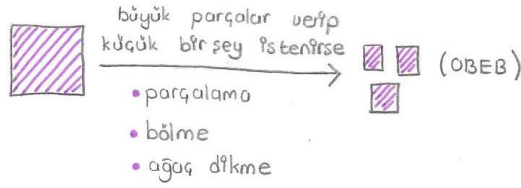 büyük parçalar verip
küçük bir şey istenirse
(OBEB)
• parçalama
• bölme
• ağaç dikme